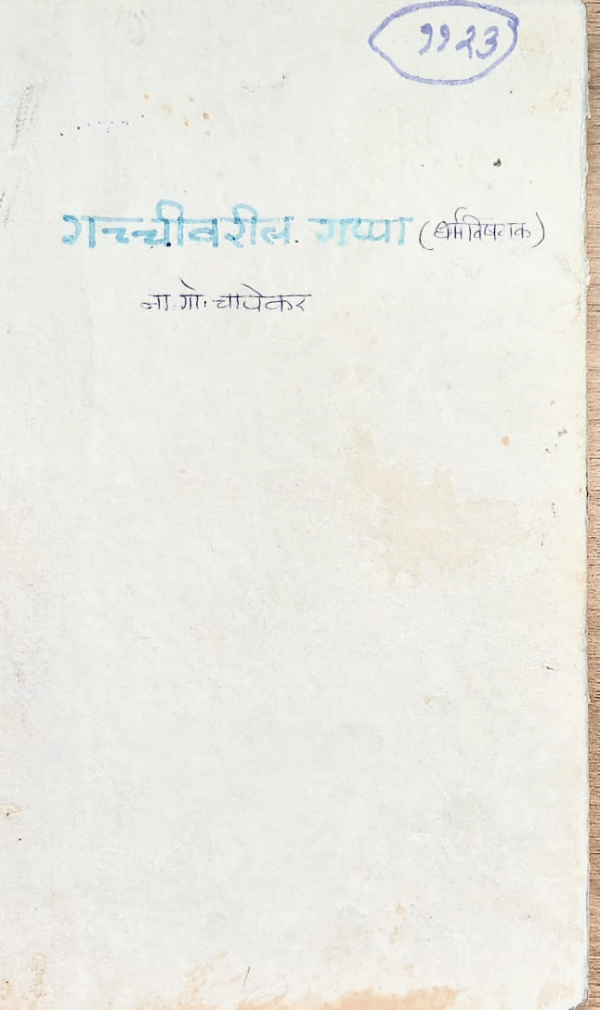 ११२३
गच्चीवरील गप्पा (धर्मविषयक)
ना. गो. चापेकर